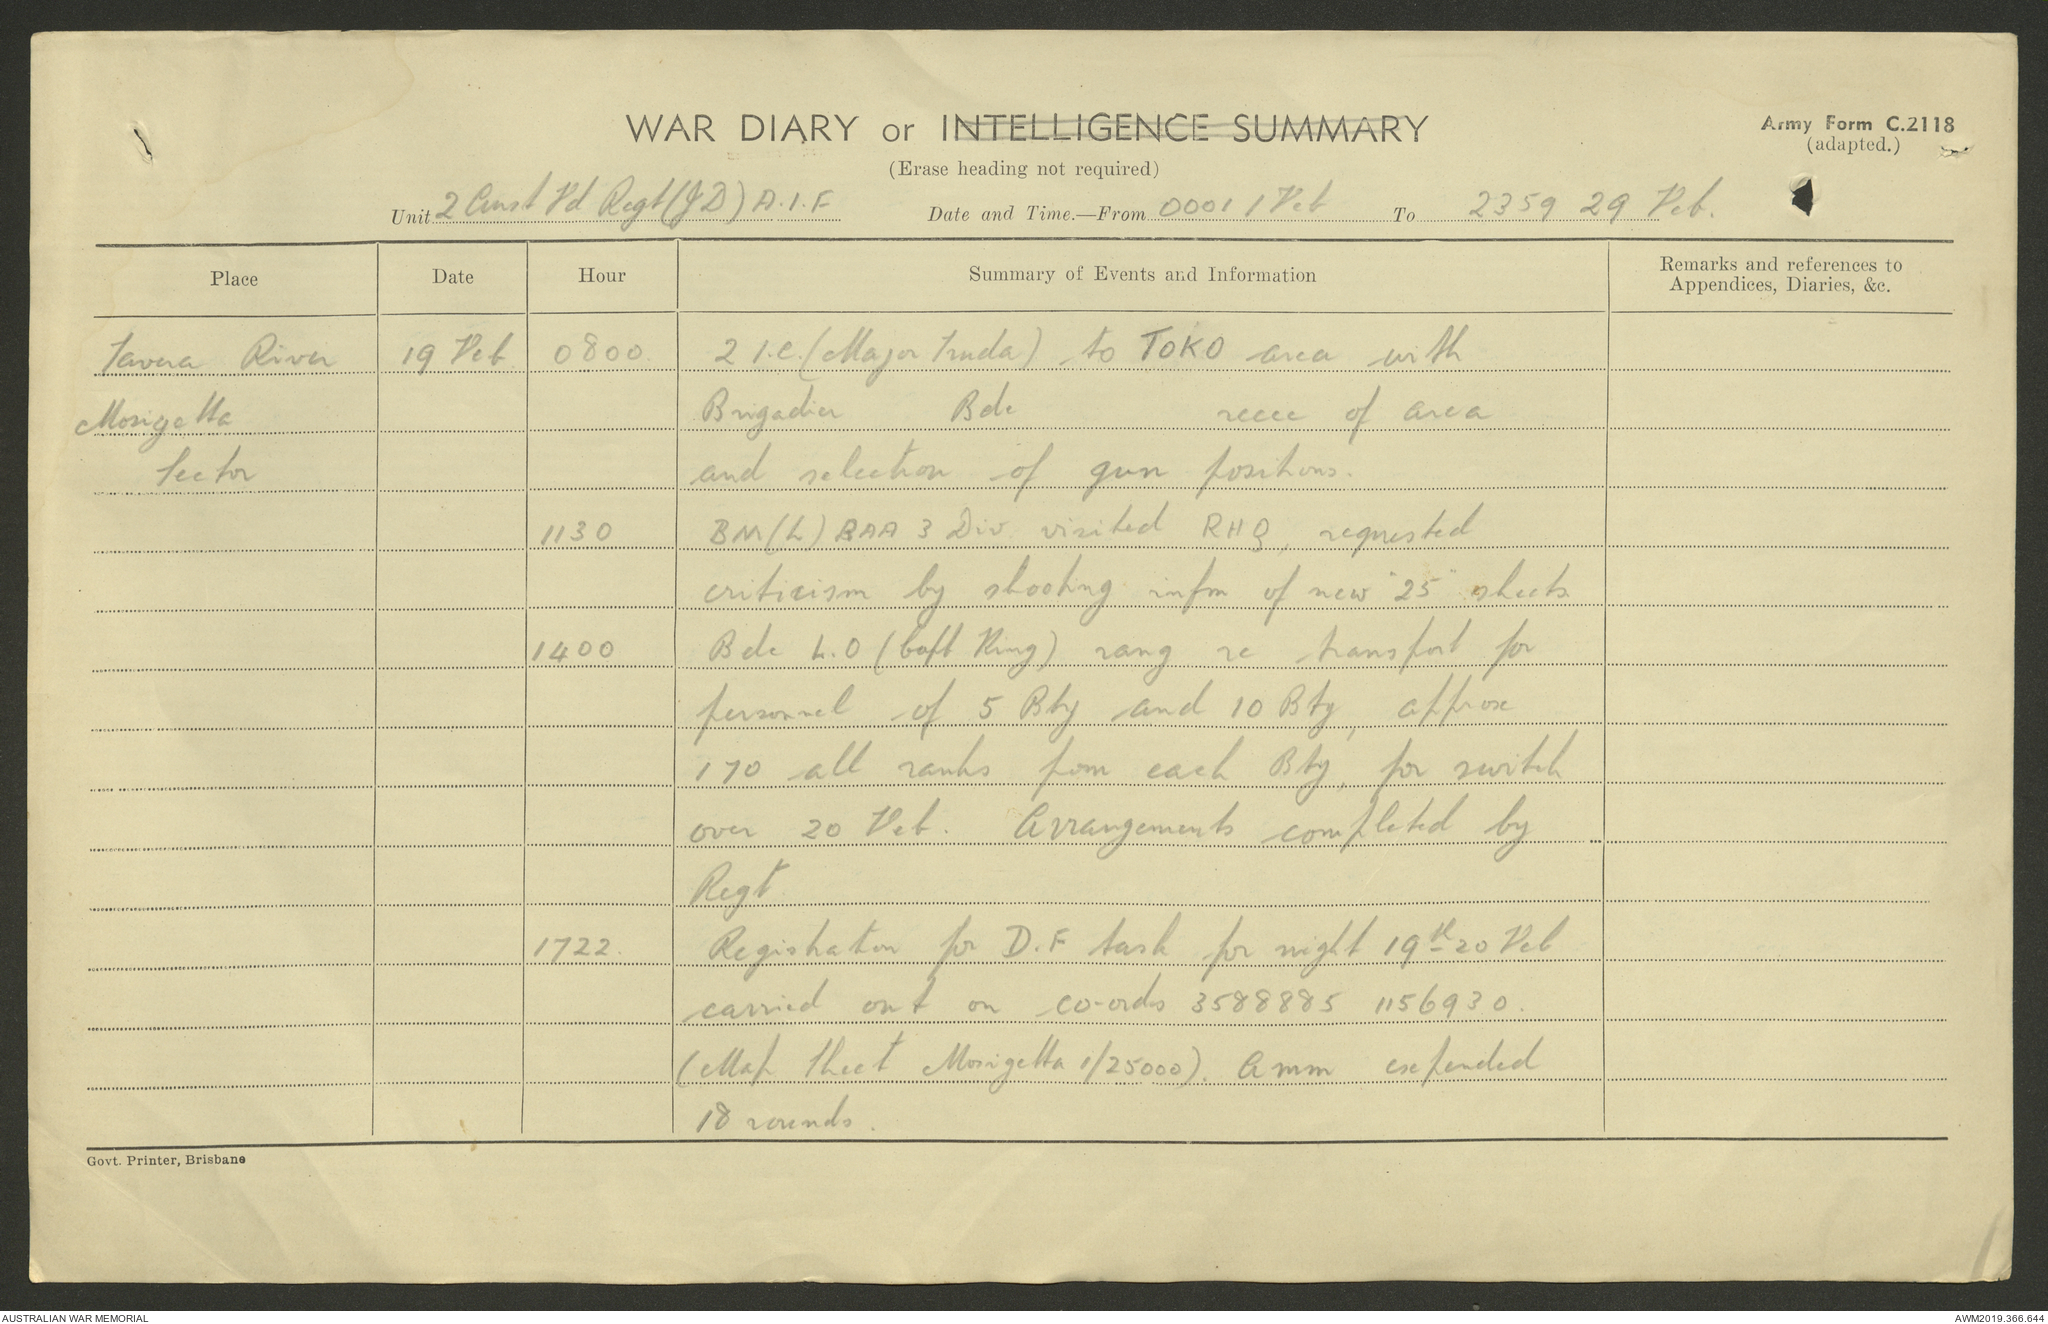 WAR DIARY or INTELLIGENCE SUMMARY
Army Form C.2118
(adapted.)
(Erase heading not required)
Unit 2 Aust Fd Regt (JD) A.I.F
Date and Time.—From 0001 1 Feb To 2359 29 Feb.
Place Date Hour Summary of Events and Information Remarks and references to
Appendices, Diaries, &c.
Tavera River 19 Feb 0800. 2 I.C. (Major Truda) to TOKO area with
Mosigetta Brigadier Bde recce of area
Sector and selection of gun positions.
1130 BM(L) RAA 3 Div. visited RHQ, requested
criticism by shooting infm of new "25" sheets
1400 Bde L.O (Capt King) rang re transport for
personnel of 5 Bty and 10 Bty, approx
170 all ranks from each Bty, for switch
over 20 Feb. Arrangements completed by
Regt
1722. Registration for D.F task for night 19th-20 Feb
carried out on co-ords 3588885 1156930.
(Map Sheet Mosigetta 1/25000). Amm expended
18 rounds.
Govt. Printer, Brisbane
AUSTRALIAN WAR MEMORIAL
AWM2019.366.644